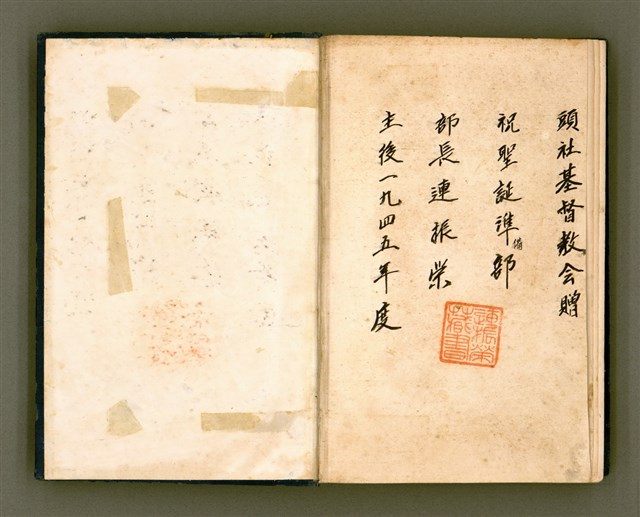 頭社基督教会贈
祝聖誕準備部
部長連振栄
主後一九四五年度
連振栄
蔵書